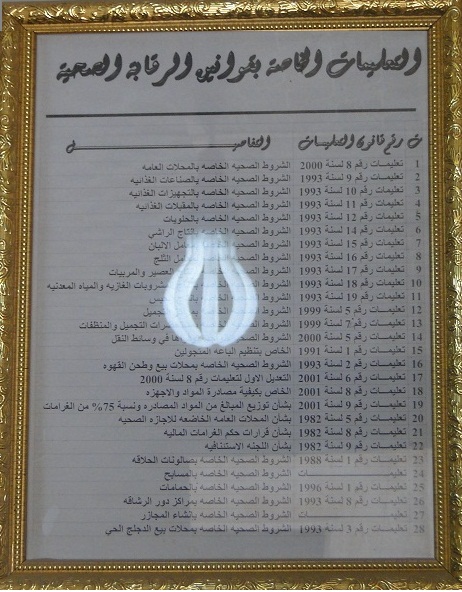 التعليمات الخاصة بقوانين الرقابة الصحية
ت رقم قانون التعليمات التفاصيل
1 تعليمات رقم 8 لسنة 2000 الشروط الصحيه الخاصه بالمحلات العامه
2 تعليمات رقم 9 لسنة 1993 الشروط الصحيه الخاصه بالصناعات الغذائيه
3 تعليمات رقم 10 لسنة 1993 الشروط الصحيه الخاصه بالتجهيزات الغذائيه
4 تعليمات رقم 11 لسنة 1993 الشروط الصحيه الخاصه بالمقبلات الغذائيه
5 تعليمات رقم 12 لسنة 1993 الشروط الصحيه الخاصه بالحلويات
6 تعليمات رقم 14 لسنة 1993 الشروط الصحيه الخاصه الراشي
7 تعليمات رقم 15 لسنة 1993 الشروط الصحيه الالبان
8 تعليمات رقم 16 لسنة 1993 الشروط الصحيه الثلج
9 تعليمات رقم 17 لسنة 1993 الشروط الصحيه العصير والمربيات
10 تعليمات رقم 18 لسنة 1993 الشروط الصحيه الغازيه والمياه المعدنيه
11 تعليمات رقم 19 لسنة 1993 الشروط الصحيه
12 تعليمات رقم 5 لسنة 1999 الشروط الصحيه
13 تعليمات رقم 7 لسنة 1999 الشروط الصحيه التجميل والمنظفات
14 تعليمات رقم 5 لسنة 2000 الشروط الصحيه في وسائط النقل
15 تعليمات رقم 1 لسنة 1991 الخاص بتنظيم الباعه المتجولين
16 تعليمات رقم 2 لسنة 2001 الشروط الصحيه الخاصه بمحلات بيع وطحن القهوه
17 تعليمات رقم 6 لسنة 2001 التعديل الاول لتعليمات رقم 8 لسنة 2000
18 تعليمات رقم 8 لسنة 2001 الخاص بكيفية مصادرة المواد والاجهزه
19 تعليمات رقم 9 لسنة 2001 بشأن توزيع المبالغ من المواد المصادره ونسبة 75% من الغرامات
20 تعليمات رقم 5 لسنة 1982 بشأن المحلات العامه الخاضعه للاجازه الصحيه
21 تعليمات رقم 8 لسنة 1982 بشأن قرارات حكم الغرامات الماليه
22 تعليمات رقم 9 لسنة 1982 بشأن اللجنه الاستئنافيه
23 تعليمات رقم 1 لسنة 1988 الشروط الصحيه الخاصه بصالونات الحلاقه
24 تعليمات الشروط الصحيه الخاصه بالمسابح
25 تعليمات رقم 1 لسنة 1996 الشروط الصحيه الخاصه بالحمامات
26 تعليمات رقم 8 لسنة 1993 الشروط الصحيه الخاصه بمراكز دور الرشاقه
27 تعليمات الشروط الصحيه الخاصه بانشاء المجازر
28 تعليمات رقم 3 لسنة 1993 الشروط الصحيه الخاصه بمحلات بيع الدجاج الحي